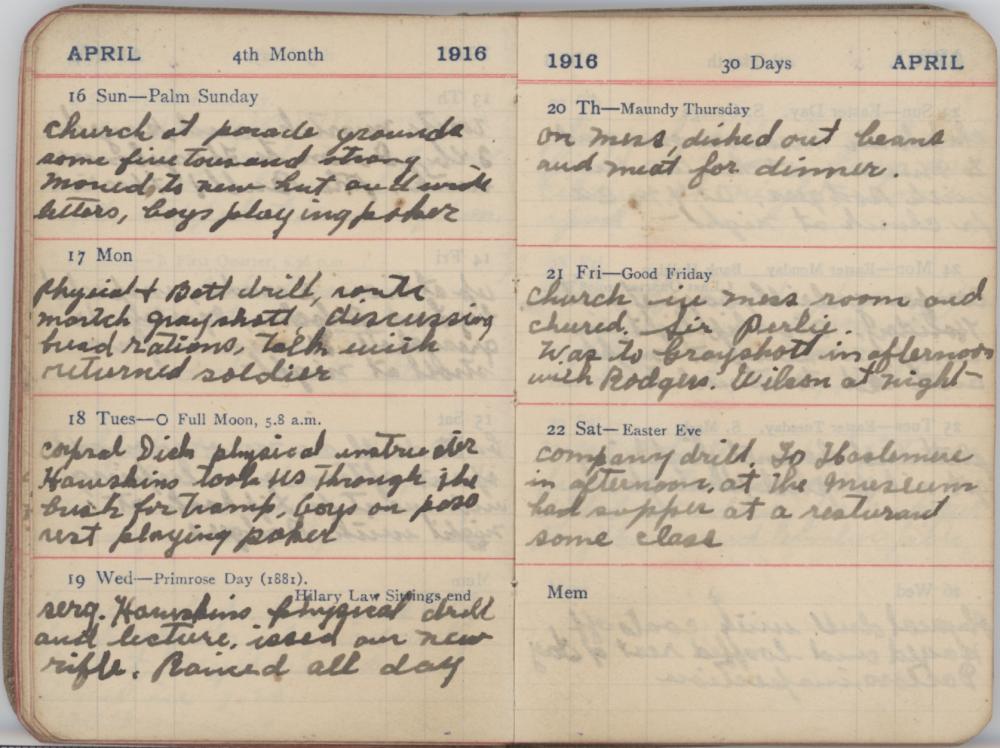 APRIL 4th Month 1916
16 Sun—Palm Sunday
church at parade grounds
some five tousand strong
moved to new hut and wrote
letters, boys playing poker
17 Mon
Physical + Batt drill, route
martch grayshott, discussing
rations, talk with
returned soldier
18 Tues—O Full Moon, 5.8 a.m.
corpral Dick physical instructer
Hawskins took us through the
bush for tramp, boys on
rest playing poker
19 Wed—Primrose Day (1881).
Hilary Law Sittings end
serg. Hawskins physical drill
and lecture, issed our new
rifle. Rained all day
1916 30 Days APRIL
20 Th—Maundy Thursday
on mess, dished out beans
and meat for dinner.
21 Fri—Good Friday
church in mess room and
Sir
Was to Grayshott in afternoon
with Rodgers. Wilson at night—
22 Sat—Easter Eve
company drill. To Haslemere
in afternoon, at the museum
had supper at a resturant
some class
Mem